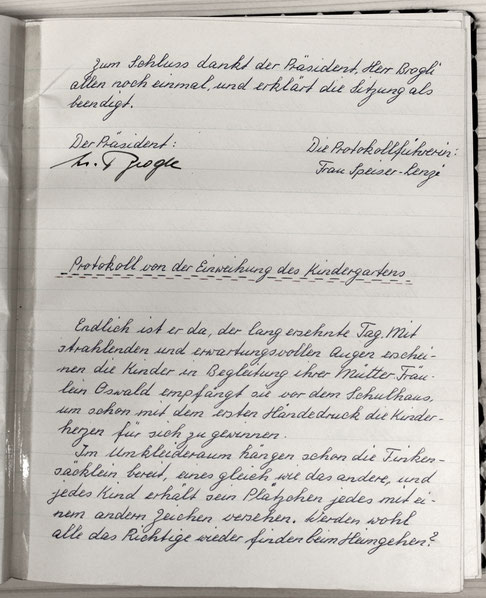 Zum Schluss dankt der Präsident, Herr Brogli
allen noch einmal, und erklärt die Sitzung als
beendigt.
Der Präsident: Die Protokollführerin:
Frau Speiser-Lenzi
Protokoll von der Einweihung des Kindergartens
Endlich ist er da, der lang ersehnte Tag. Mit
strahlenden und erwartungsvollen Augen erschei-
nen die Kinder in Begleitung ihrer Mütter. Fräu-
lein Oswald empfängt sie vor dem Schulhaus,
um schon mit dem ersten Händedruck die Kinder-
herzen für sich zu gewinnen.
Im Umkleideraum hängen schon die Finken-
säcklein bereit, eines gleich wie das andere, und
jedes Kind erhält sein Plätzchen jedes mit ei-
nem andern Zeichen versehen. Werden wohl
alle das Richtige wieder finden beim Heimgehen?